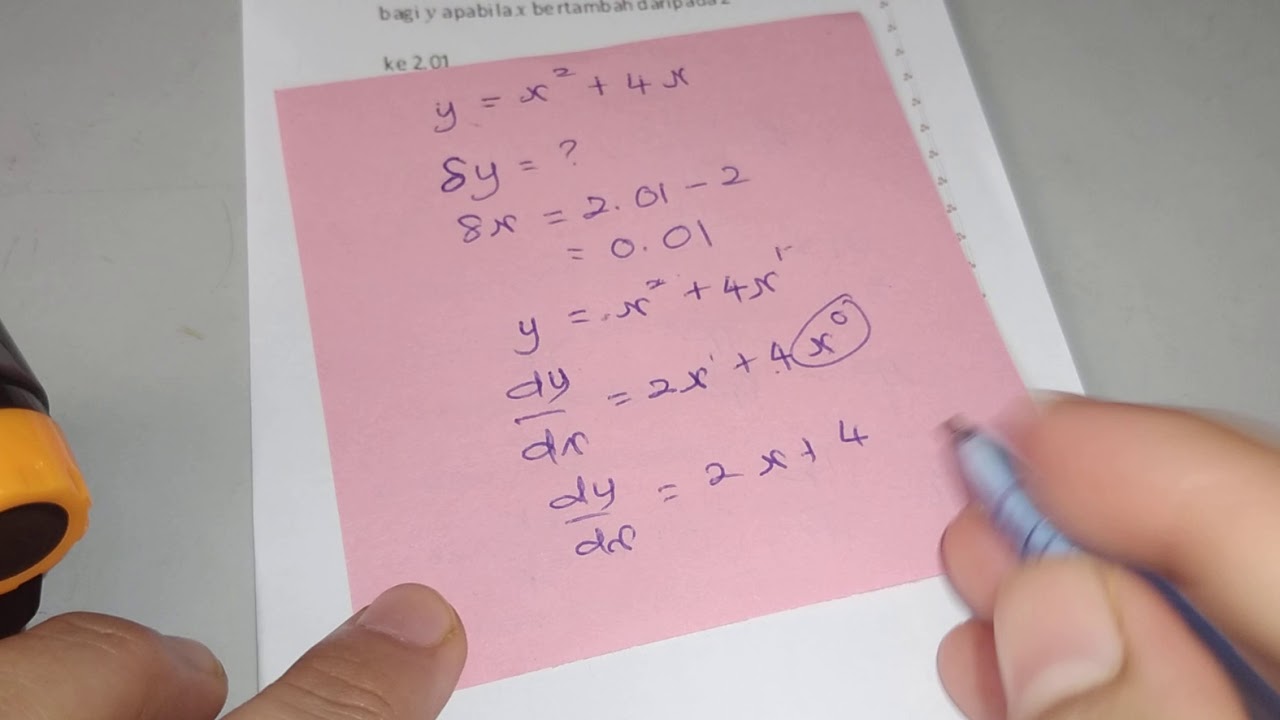 bagi y apabila x bertambah daripada 2
ke 2.01
y = x² + 4x
δy = ?
δx = 2.01 - 2
= 0.01
y = x² + 4x¹
dy/dx = 2x¹ + 4x⁰
dy/dx = 2x + 4